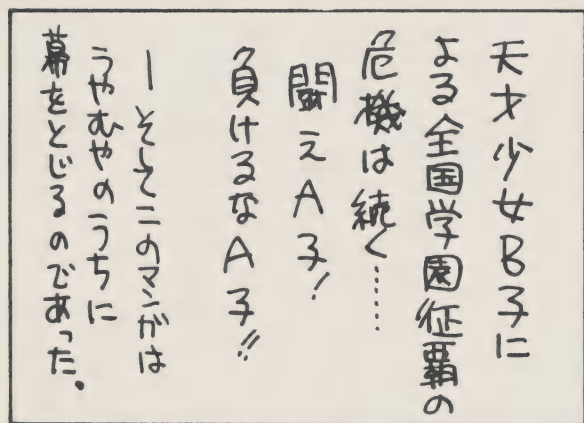 天才少女B子に
よる全国学園征覇の
危機は続く……
闘えA子!
負けるなA子!!
ーそしてこのマンガは
うやむやのうちに
幕をとじるのであった。